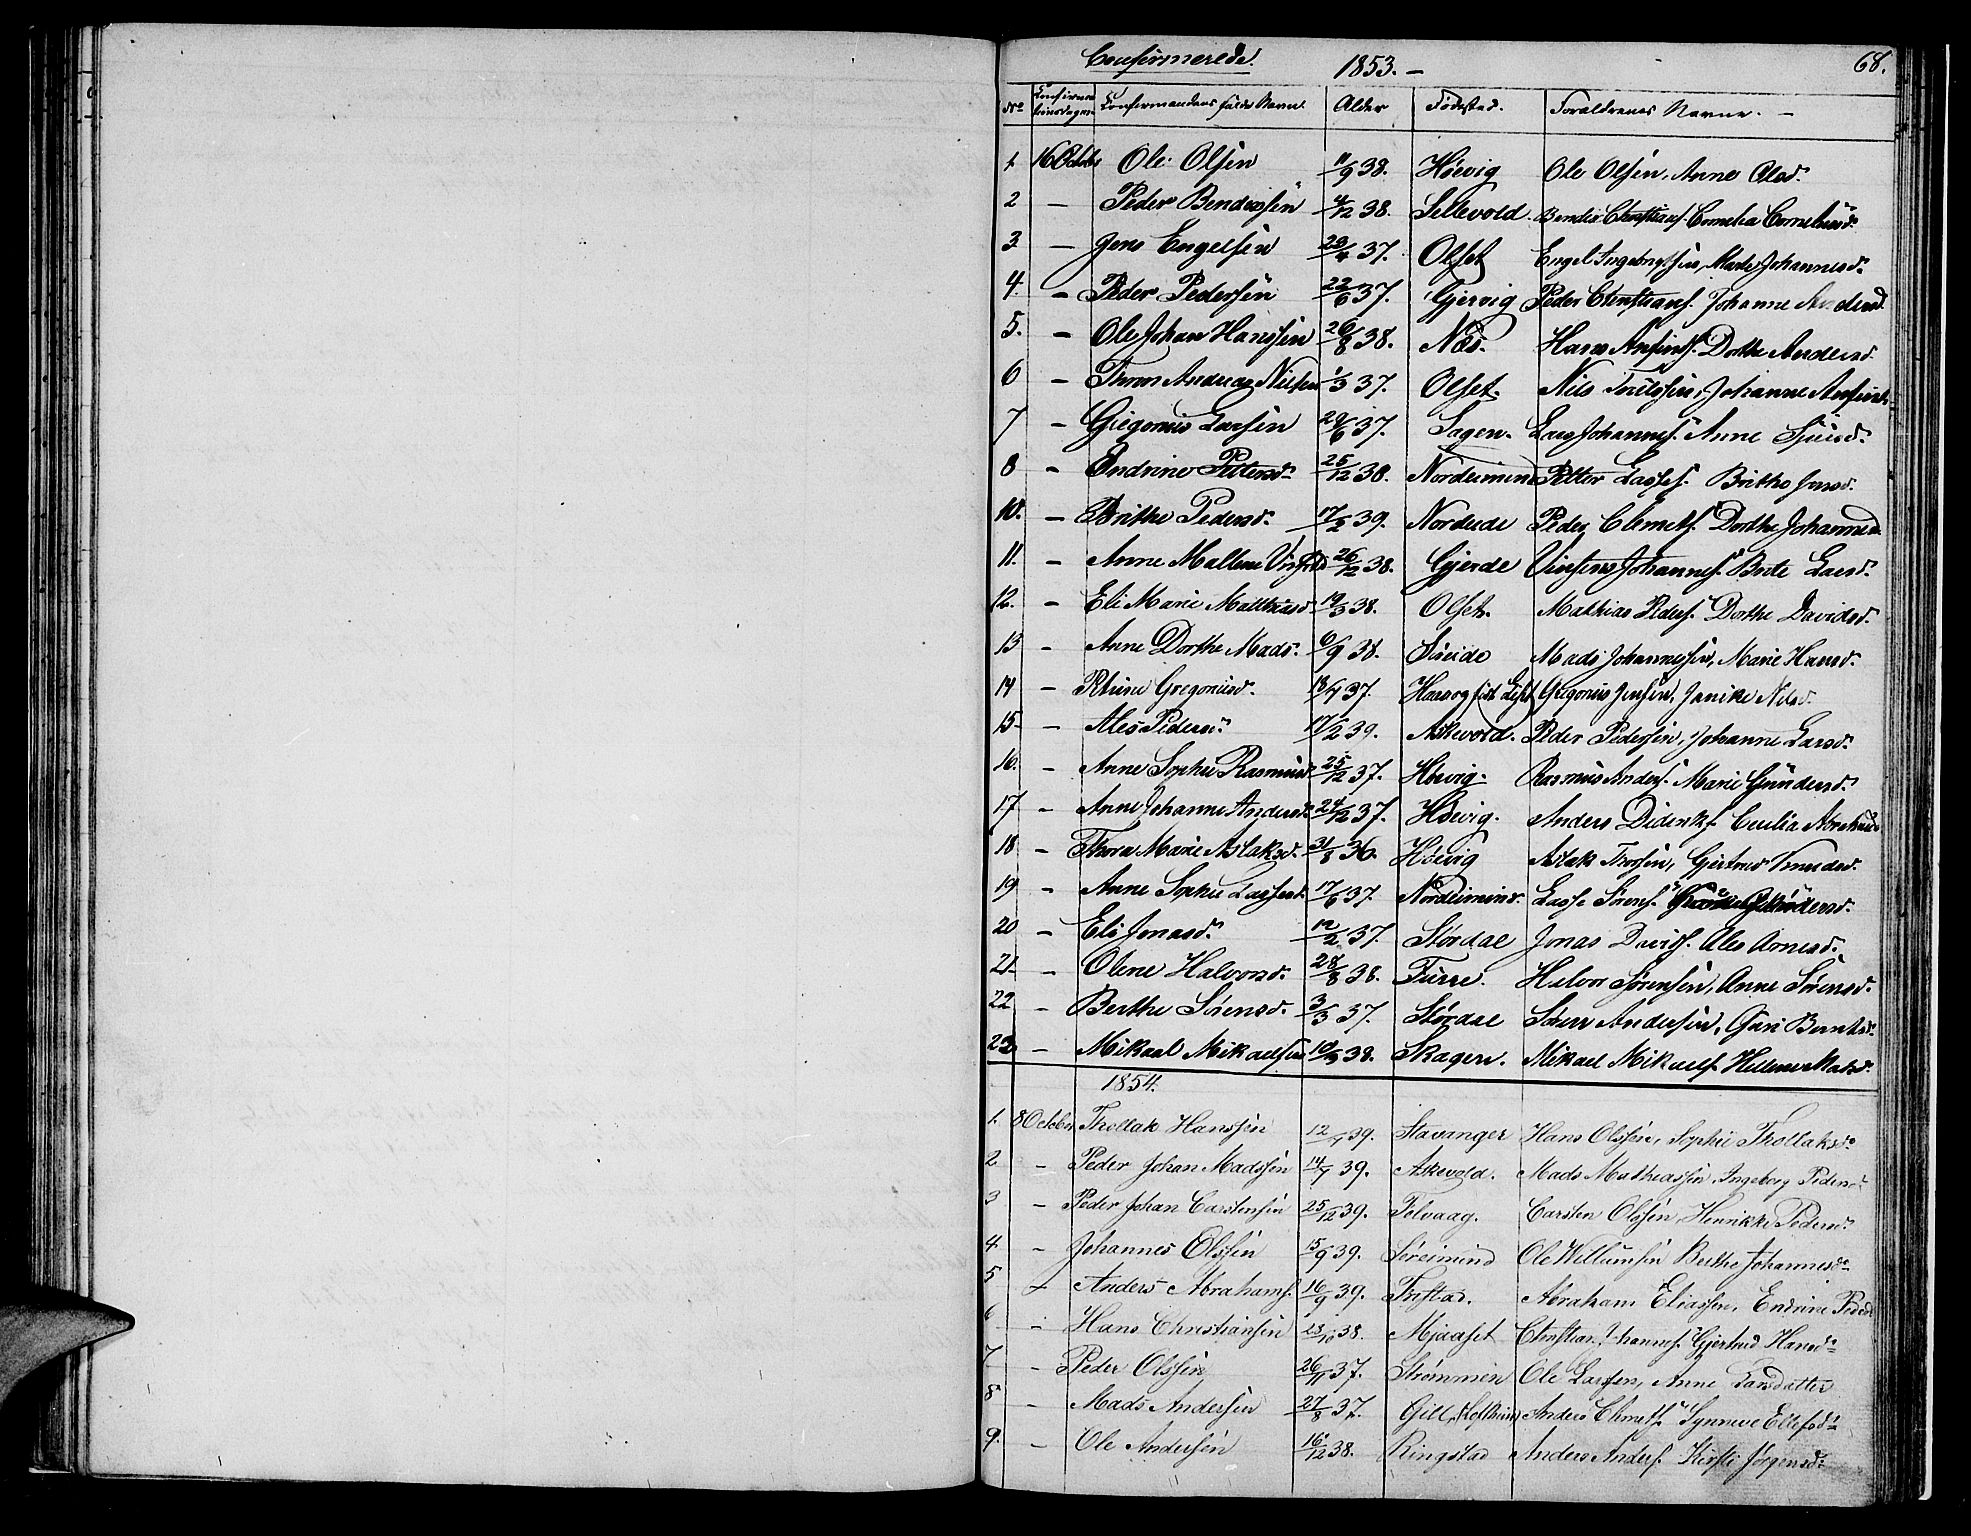 Confirmerede. 1853. — 68.
No Confirmationsdagen Confirmandens fulde Navn. Alder Fødested. Forældrenes Navne. —
1. 16 Octobr Ole Olsen 11/9 38. Høevig Ole Olsen, Anne Olsd.
2 — Peder Bendixsen 4/12 38. Sellevold. Bendix Christians. Cornelia Corneliusd.
3 — Jens Engelsen 23/4 37. Olset Engel Ingebrigtsen, Marte Johannesd.
4. — Peder Pedersen 22/6 37. Gjervig Peder Christians. Johanne Andersd.
5. — Ole Johan Hanssen 26/8 38. Næs. Hans Ansints. Dorthe Andersd.
6 — Thron Andreas Nilsen 1/3 37. Olset. Nils Johanne
7 — Gregorius Larsen 29/6 37. Sagen. Lars Johannes. Anne Sjursd.
8 — Endrine Pettersd. 25/12 38. Nordeimund Petter Lasses. Brithe Jensd.
10. — Brithe Pedersd. 17/2 39. Nordeide Peder Clemets. Dorthe Johannesd.
11. — Anne Malene 26/12 38. Gjerde Vinsens Johannes. Brite Larsd.
12. — Eli Marie Matthiasd. 19/3 38. Olset. Mathias Peders. Dorthe Davidsd.
13 — Anne Dorthe Mads. 6/9 38. Søeide Mads Johannessen, Marie Hansd.
14 — Rhine Gregoriusd. 18/4 37. Gregorius Jensen, Janike Nilsd.
15. — Ales Pedersd. 17/2 39. Askevold. Peder Pedersen, Johanne Larsd.
16. — Anne Sophie Rasmusd. 25/12 37. Høevig. Rasmus Anders. Marie Gundersd.
17 — Anne Johanne Andersd. 24/12 37. Høevig. Anders Didriks. Cecilia Abrahamsd
18 — Thora Marie Aslaksd. 31/8 36. Høevig Aslak Thorsen, Gjertrud Knudsd.
19 — Anne Sophie Lassesd. 17/6 37. Nordeimund. Lasse Sørens.
20 — Eli Jonasd. 12/2 37. Størdal Jonas Davids. Ales Arnesd.
21 — Oline Halvorsd. 28/8 38. Furre. Halvor Sørensen, Anne Sørensd.
22 — Berthe Sørensd. 3/3 37. Størdal Søren Andersen, Guri Berntsd.
23 — Mikael Mikaelsen 10/3 38. Skagen. Mikael Mikaels. Hellene Matsd.
1854.
1. 8 October Thollak Hanssen 12/7 39. Stavanger Hans Olssen, Sophie Thollaksd.
2 — Peder Johan Madssen 14/7 39. Askevold. Mads Mathiassen, Ingeborg Pedersd.
3 — Peder Johan Carstensen 25/12 39. Folvaag. Carsten Olssen, Henrikke Pedersd.
4. — Johannes Olssen 15/9 39. Søreimund Ole Willumsen Berthe Johannesd.
5 — Anders Abrahams. 16/9 39. Tristad. Abraham Eliassen, Endrine Pedersd
6 — Hans Christiansen 23/10 38. Mjaaset Christian Johannes. Gjertrud Hansd.
7 — Peder Olssen 26/11 37. Strømmen Ole Larssen, Anne Larsdatter
8 — Mads Andersen 27/8 37. Gill Anders Clmets. Synneve Ellefsd.
9. — Ole Andersen 16/12 38. Ringstad Anders Anders. Kirsti Jørgensd.